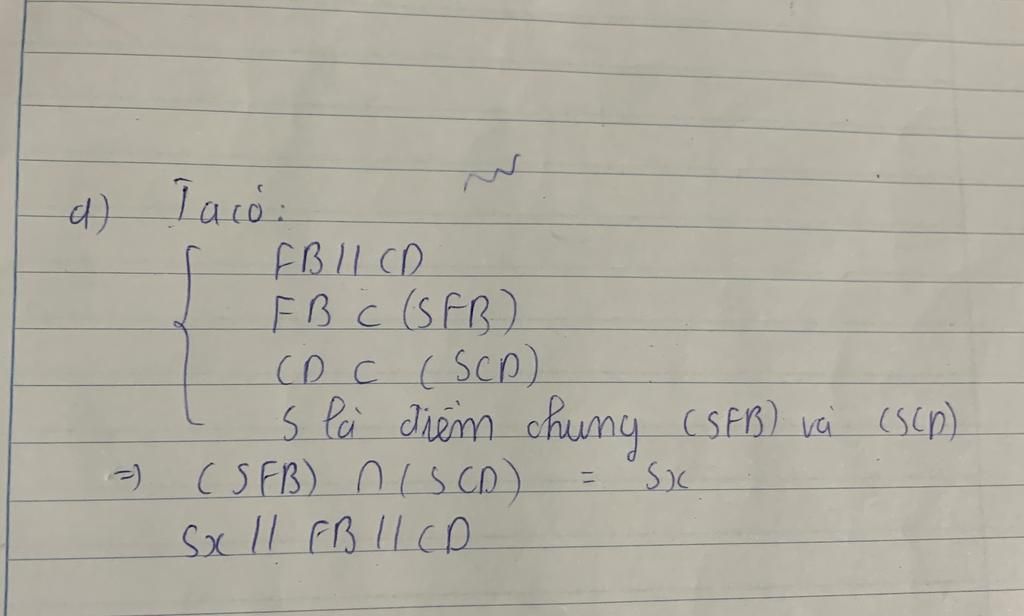 d) Ta có:
FB // CD
FB ⊂ (SFB)
CD ⊂ (SCD)
S là điểm chung (SFB) và (SCD)
=> (SFB) ∩ (SCD) = Sx
Sx // FB // CD